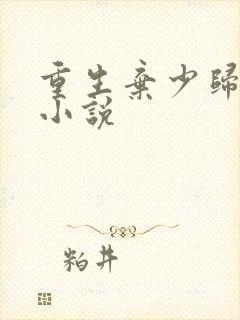 重生棄少歸
小說
粕井